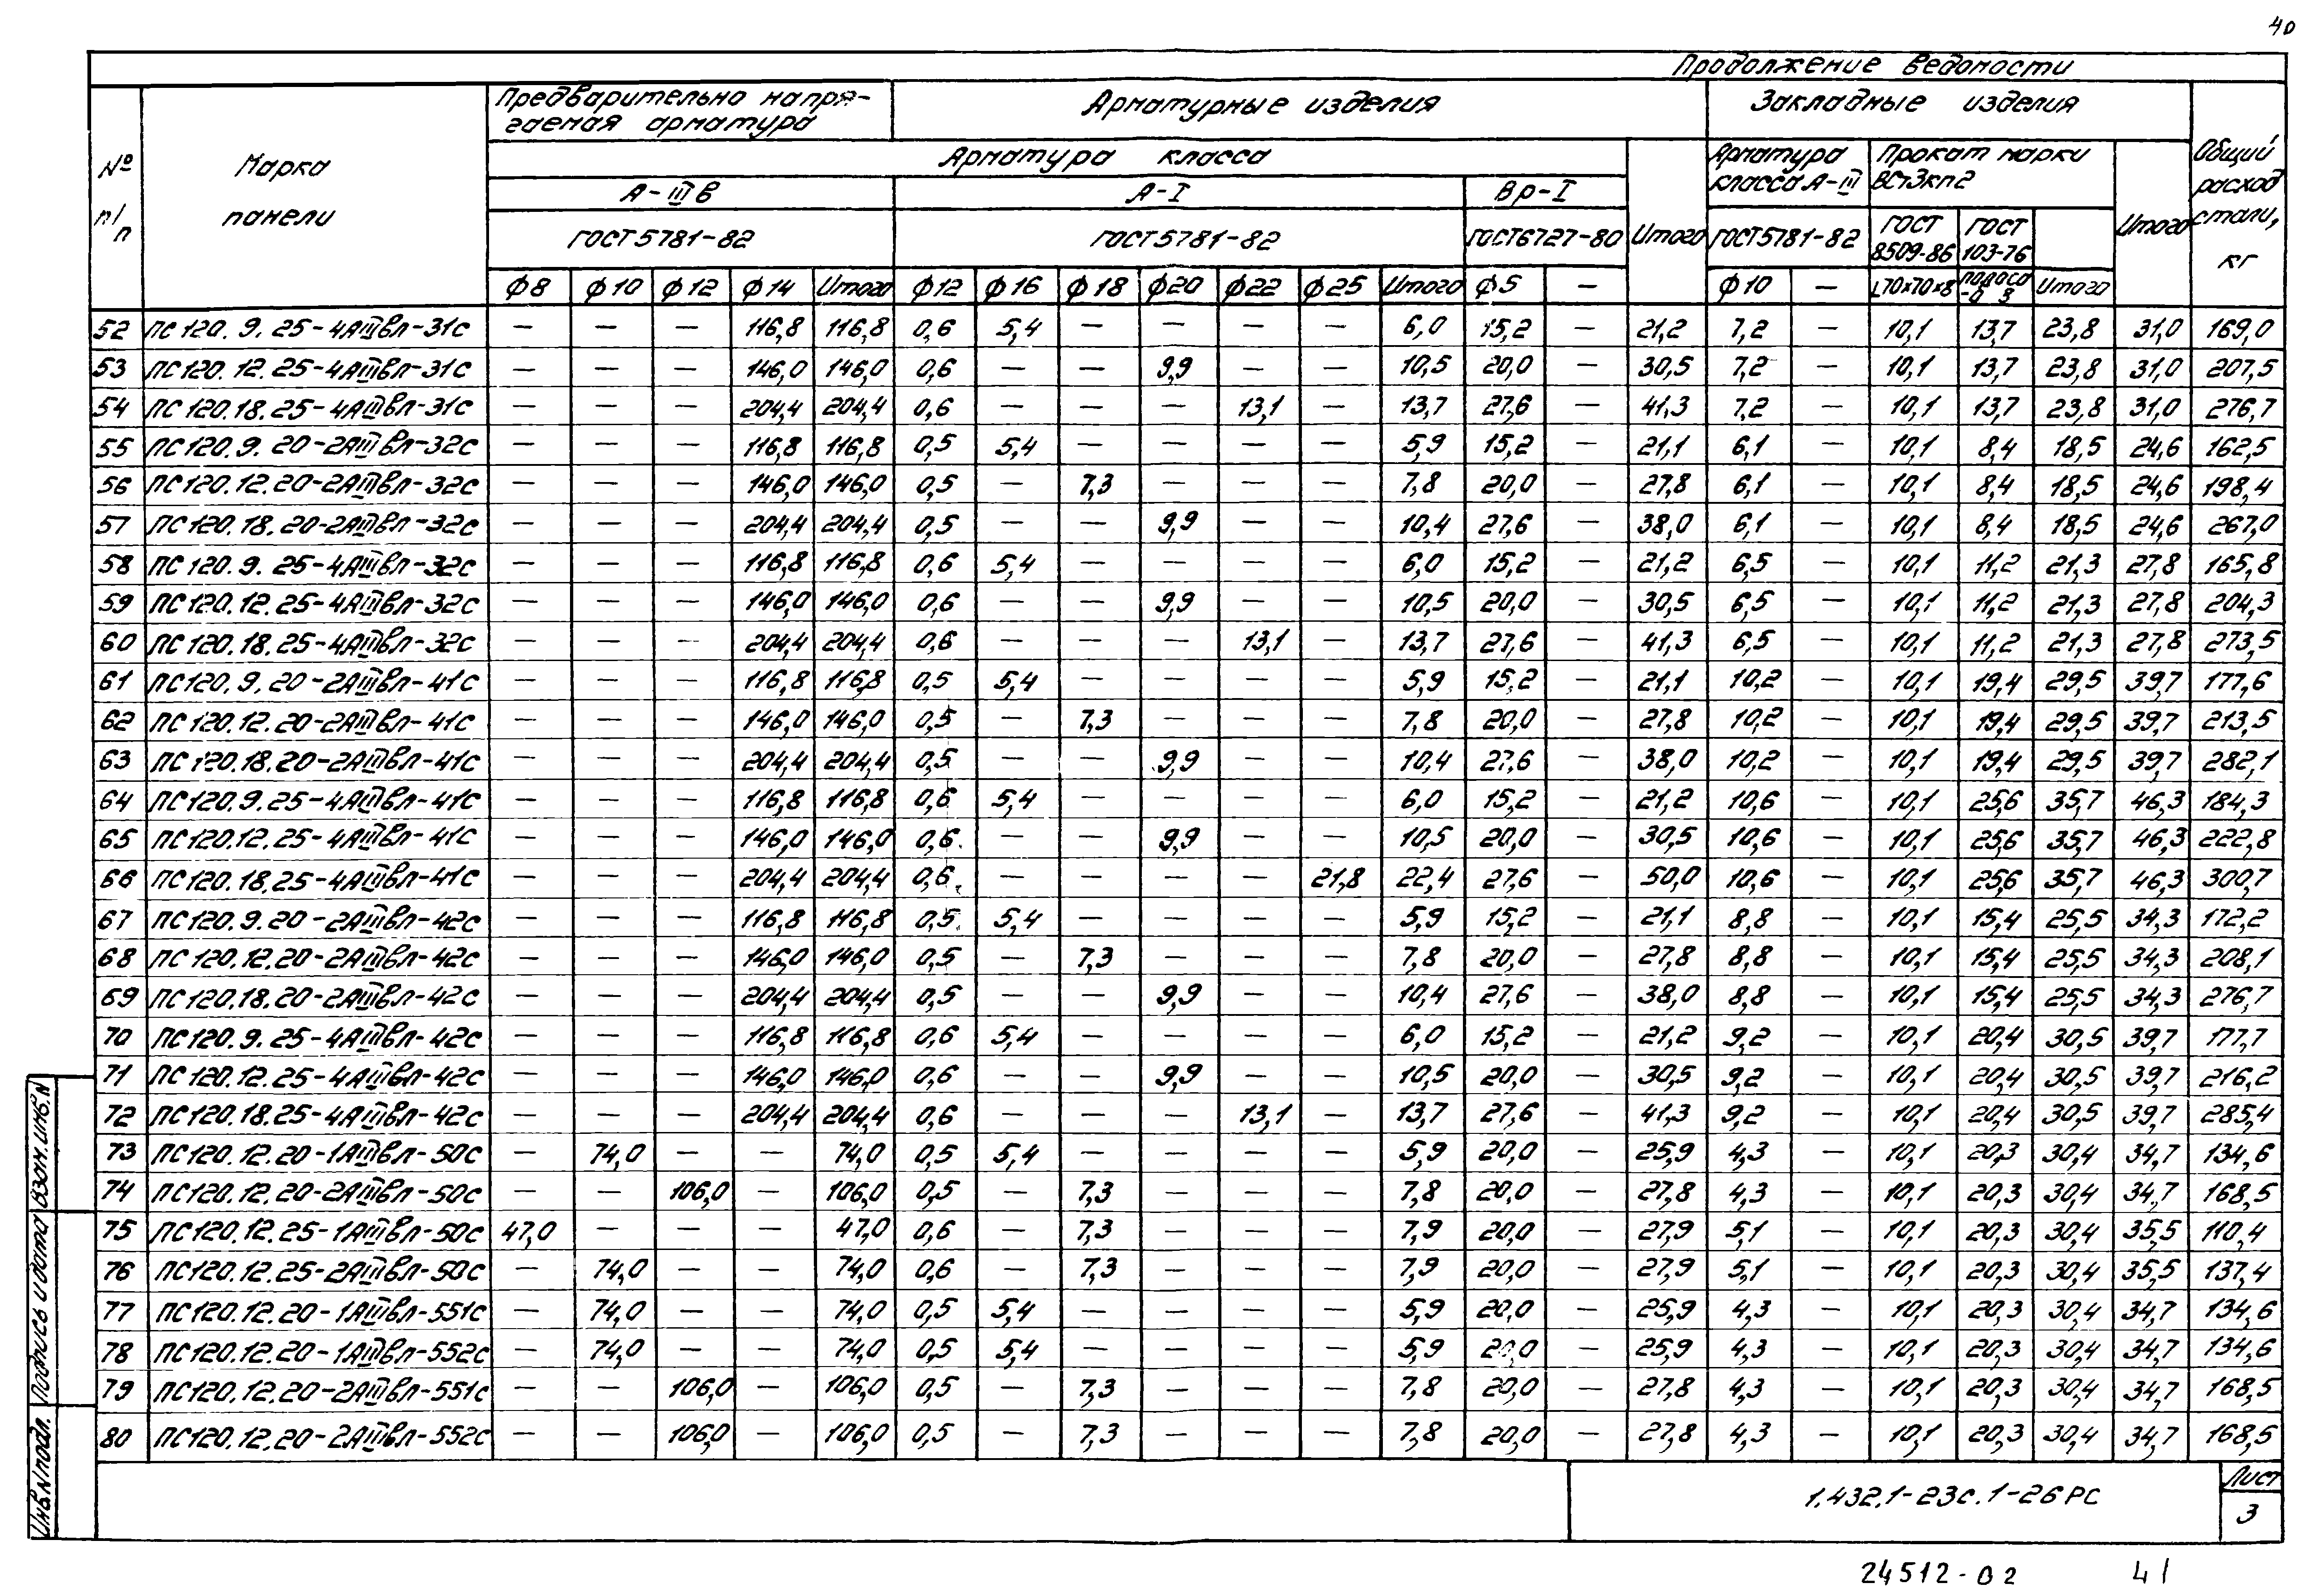 40
Продолжение ведомости
№ п/п
Марка панели
Предварительно напря-
гаемая арматура
Арматурные изделия
Закладные изделия
Общий расход стали, кг
Арматура класса
Итого
Арматура класса А-III
Прокат марки ВСт3кп2
Итого
А-IIIв
А-I
Вр-I
ГОСТ 5781-82
ГОСТ 5781-82
ГОСТ 6727-80
ГОСТ 5781-82
ГОСТ 8509-86
ГОСТ 103-76
Ф8 Ф10 Ф12 Ф14 Итого Ф12 Ф16 Ф18 Ф20 Ф22 Ф25 Итого Ф5 — Ф10 — L70х70х8 Итого
52 ПС120.9.25-4АIIIвл-31с — — — 116,8 116,8 0,6 5,4 — — — — 6,0 15,2 — 21,2 7,2 — 10,1 13,7 23,8 31,0 169,0
53 ПС120.12.25-4АIIIвл-31с — — — 146,0 146,0 0,6 — — 9,9 — — 10,5 20,0 — 30,5 7,2 — 10,1 13,7 23,8 31,0 207,5
54 ПС120.18.25-4АIIIвл-31с — — — 204,4 204,4 0,6 — — — 13,1 — 13,7 27,6 — 41,3 7,2 — 10,1 13,7 23,8 31,0 276,7
55 ПС120.9.20-2АIIIвл-32с — — — 116,8 116,8 0,5 5,4 — — — — 5,9 15,2 — 21,1 6,1 — 10,1 8,4 18,5 24,6 162,5
56 ПС120.12.20-2АIIIвл-32с — — — 146,0 146,0 0,5 — 7,3 — — — 7,8 20,0 — 27,8 6,1 — 10,1 8,4 18,5 24,6 198,4
57 ПС120.18.20-2АIIIвл-32с — — — 204,4 204,4 0,5 — — 9,9 — — 10,4 27,6 — 38,0 6,1 — 10,1 8,4 18,5 24,6 267,0
58 ПС120.9.25-4АIIIвл-32с — — — 116,8 116,8 0,6 5,4 — — — — 6,0 15,2 — 21,2 6,5 — 10,1 11,2 21,3 27,8 165,8
59 ПС120.12.25-4АIIIвл-32с — — — 146,0 146,0 0,6 — — 9,9 — — 10,5 20,0 — 30,5 6,5 — 10,1 11,2 21,3 27,8 204,3
60 ПС120.18.25-4АIIIвл-32с — — — 204,4 204,4 0,6 — — — 13,1 — 13,7 27,6 — 41,3 6,5 — 10,1 11,2 21,3 27,8 273,5
61 ПС120.9.20-2АIIIвл-41с — — — 116,8 116,8 0,5 5,4 — — — — 5,9 15,2 — 21,1 10,2 — 10,1 19,4 29,5 39,7 177,6
62 ПС120.12.20-2АIIIвл-41с — — — 146,0 146,0 0,5 — 7,3 — — — 7,8 20,0 — 27,8 10,2 — 10,1 19,4 29,5 39,7 213,5
63 ПС120.18.20-2АIIIвл-41с — — — 204,4 204,4 0,5 — — 9,9 — — 10,4 27,6 — 38,0 10,2 — 10,1 19,4 29,5 39,7 282,1
64 ПС120.9.25-4АIIIвл-41с — — — 116,8 116,8 0,6 5,4 — — — — 6,0 15,2 — 21,2 10,6 — 10,1 25,6 35,7 46,3 184,3
65 ПС120.12.25-4АIIIвл-41с — — — 146,0 146,0 0,6 — — 9,9 — — 10,5 20,0 — 30,5 10,6 — 10,1 25,6 35,7 46,3 222,8
66 ПС120.18.25-4АIIIвл-41с — — — 204,4 204,4 0,6 — — — — 21,8 22,4 27,6 — 50,0 10,6 — 10,1 25,6 35,7 46,3 300,7
67 ПС120.9.20-2АIIIвл-42с — — — 116,8 116,8 0,5 5,4 — — — — 5,9 15,2 — 21,1 8,8 — 10,1 15,4 25,5 34,3 172,2
68 ПС120.12.20-2АIIIвл-42с — — — 146,0 146,0 0,5 — 7,3 — — — 7,8 20,0 — 27,8 8,8 — 10,1 15,4 25,5 34,3 208,1
69 ПС120.18.20-2АIIIвл-42с — — — 204,4 204,4 0,5 — — 9,9 — — 10,4 27,6 — 38,0 8,8 — 10,1 15,4 25,5 34,3 276,7
70 ПС120.9.25-4АIIIвл-42с — — — 116,8 116,8 0,6 5,4 — — — — 6,0 15,2 — 21,2 9,2 — 10,1 20,4 30,5 39,7 177,7
71 ПС120.12.25-4АIIIвл-42с — — — 146,0 146,0 0,6 — — 9,9 — — 10,5 20,0 — 30,5 9,2 — 10,1 20,4 30,5 39,7 216,2
72 ПС120.18.25-4АIIIвл-42с — — — 204,4 204,4 0,6 — — — 13,1 — 13,7 27,6 — 41,3 9,2 — 10,1 20,4 30,5 39,7 285,4
73 ПС120.12.20-1АIIIвл-50с — 74,0 — — 74,0 0,5 5,4 — — — — 5,9 20,0 — 25,9 4,3 — 10,1 20,3 30,4 34,7 134,6
74 ПС120.12.20-2АIIIвл-50с — — 106,0 — 106,0 0,5 — 7,3 — — — 7,8 20,0 — 27,8 4,3 — 10,1 20,3 30,4 34,7 168,5
75 ПС120.12.25-1АIIIвл-50с 47,0 — — — 47,0 0,6 — 7,3 — — — 7,9 20,0 — 27,9 5,1 — 10,1 20,3 30,4 35,5 110,4
76 ПС120.12.25-2АIIIвл-50с — 74,0 — — 74,0 0,6 — 7,3 — — — 7,9 20,0 — 27,9 5,1 — 10,1 20,3 30,4 35,5 137,4
77 ПС120.12.20-1АIIIвл-551с — 74,0 — — 74,0 0,5 5,4 — — — — 5,9 20,0 — 25,9 4,3 — 10,1 20,3 30,4 34,7 134,6
78 ПС120.12.20-1АIIIвл-552с — 74,0 — — 74,0 0,5 5,4 — — — — 5,9 20,0 — 25,9 4,3 — 10,1 20,3 30,4 34,7 134,6
79 ПС120.12.20-2АIIIвл-551с — — 106,0 — 106,0 0,5 — 7,3 — — — 7,8 20,0 — 27,8 4,3 — 10,1 20,3 30,4 34,7 168,5
80 ПС120.12.20-2АIIIвл-552с — — 106,0 — 106,0 0,5 — 7,3 — — — 7,8 20,0 — 27,8 4,3 — 10,1 20,3 30,4 34,7 168,5
Инв.N подл. Подпись и дата Взам.инв.N
1.432.1-23с.1-26РС
Лист
3
24512-02 41